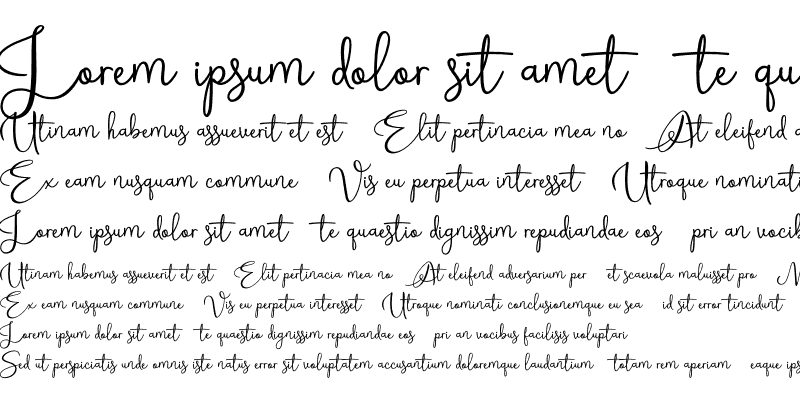 Lorem ipsum dolor sit amet te qu
Utinam habemus assueverit et est Elit pertinacia mea no At eleifend a
Ex eam nusquam commune Vis eu perpetua interesset Utroque nominati
Lorem ipsum dolor sit amet te quaestio dignissim repudiandae eos pri an vocib
Utinam habemus assueverit et est Elit pertinacia mea no At eleifend adversarium per et scaevola maluisset pro N
Ex eam nusquam commune Vis eu perpetua interesset Utroque nominati conclusionemque eu sea id sit error tincidunt
Lorem ipsum dolor sit amet te quaestio dignissim repudiandae eos pri an vocibus facilisis voluptari
Sed ut perspiciatis unde omnis iste natus error sit voluptatem accusantium doloremque laudantium totam rem aperiam eaque ips